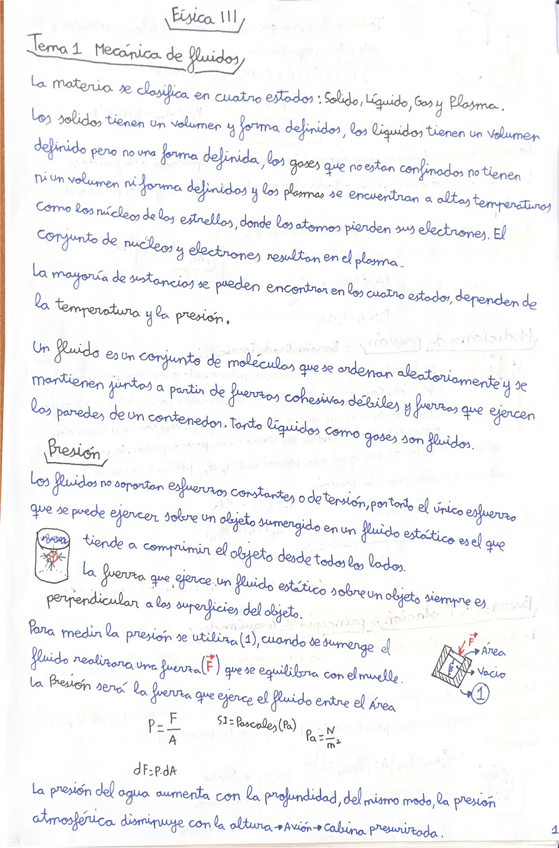 Física III
Tema 1 Mecánica de fluidos
La materia se clasifica en cuatro estados: Solido, Líquido, Gas y Plasma.
Los solidos tienen un volumen y forma definidos, los liquidos tienen un volumen
definido pero no una forma definida, los gases que no estan confinados no tienen
ni un volumen ni forma definidos y los plasmas se encuentran a altas temperaturas
como los núcleos de las estrellas, donde los atomos pierden sus electrones. El
conjunto de nucleos y electrones resultan en el plasma.
La mayoría de sustancias se pueden encontrar en los cuatro estados, dependen de
la temperatura y la presión.
Un fluido es un conjunto de moléculas que se ordenan aleatoriamente y se
mantienen juntas a partir de fuerzas cohesivas débiles y fuerzas que ejercen
las paredes de un contenedor. Tanto líquidos como gases son fluidos.
Presión
Los fluidos no soportan esfuerzos constantes o de tensión, por tanto el único esfuerzo
que se puede ejercer sobre un objeto sumergido en un fluido estático es el que
tiende a comprimir el objeto desde todos los lados.
La fuerza que ejerce un fluido estático sobre un objeto siempre es
perpendicular a las superficies del objeto.
Para medir la presión se utiliza (1), cuando se sumerge el
fluido realizara una fuerza (F) que se equilibra con el muelle.
La Presión será la fuerza que ejerce el fluido entre el Área
F
Área
Vacio
1
P = F/A SI = Pascales (Pa) Pa = N/m²
dF = P·dA
La presión del agua aumenta con la profundidad, del mismo modo, la presión
atmosférica disminuye con la altura → Avión → Cabina presurizada.
1